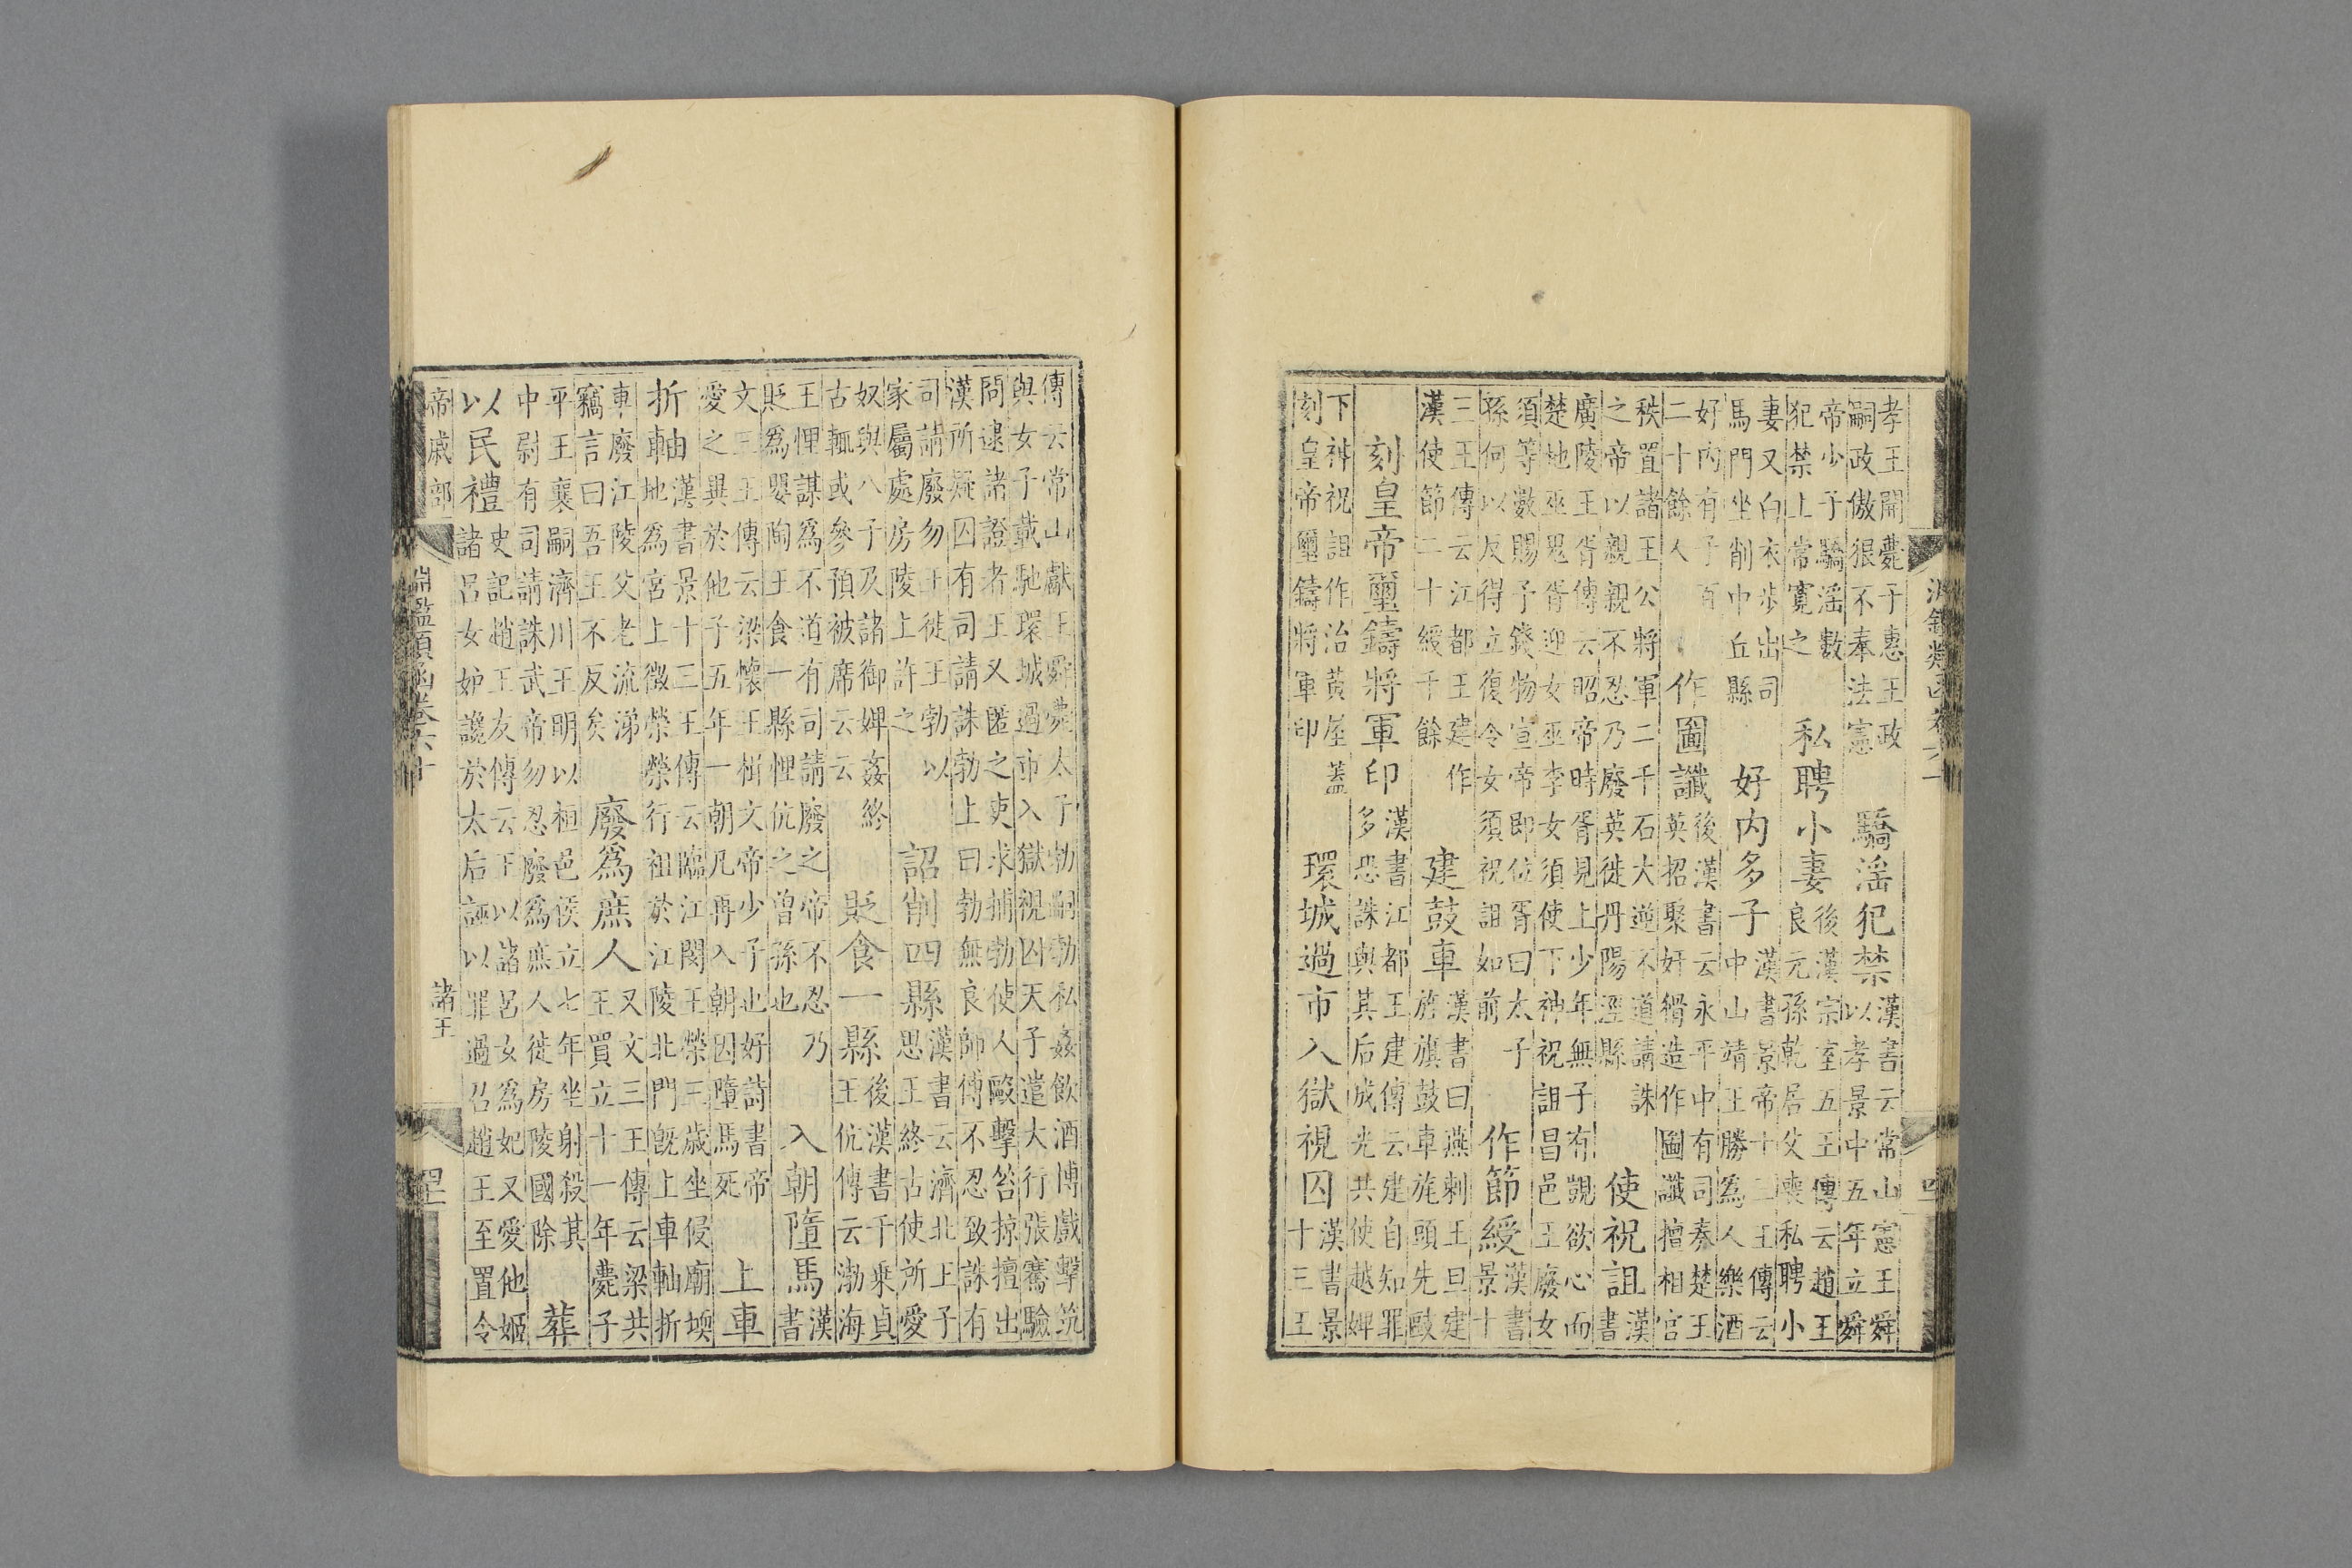 孝王開薨子惠王政
嗣政傲狠不奉法憲
驕淫犯禁
漢書云常山憲王舜
以孝景中五年立舜
帝少子驕淫數
犯禁上常寬之
私聘小妻
後漢宗室五王傳云趙王
良元孫乾居父喪私聘小
妻又白衣步出司
馬門坐削中丘縣
好內多子
漢書景帝十三王傳云
中山靖王勝為人樂酒
好內有子百
二十餘人
作圖讖
後漢書云永平中有司奏楚王
英招聚奸猾造作圖讖擅相官
秩置諸王公將軍二千石大逆不道請誅
之帝以親親不忍乃廢英徙丹陽涇縣
使祝詛
漢
書
廣陵王胥傳云昭帝時胥見上少年無子有覬欲心而
楚地巫鬼胥迎女巫李女須使下神祝詛昌邑王廢女
須等數賜予錢物宣帝即位胥曰太子
孫何以反得立復令女須祝詛如前
作節綬
漢書
景十
三王傳云江都王建作
漢使節二十綬千餘
建鼓車
漢書曰燕剌王旦建
旌旗鼓車旄頭先敺
刻皇帝璽鑄將軍印
漢書江都王建傳云建自知罪
多恐誅與其后成光共使越婢
下神祝詛作治黃屋蓋
刻皇帝璽鑄將軍印
環城過市入獄視囚
漢書景
十三王
傳云常山獻王舜薨太子勃嗣勃私姦飲酒博戲擊筑
與女子載馳環城過市入獄視囚天子遣大行張騫驗
問逮諸證者王又匿之吏求捕勃使人毆擊笞掠擅出
漢所疑囚有司請誅勃上曰勃無良師傅不忍致誅有
司請廢勿王徙王勃以
家屬處房陵上許之
詔削四縣
漢書云濟北上子
思王終古使所愛
奴與八子及諸御婢姦終
古輒或參預被席云云
貶食一縣
後漢書千乘貞
王伉傳云渤海
王悝謀為不道有司請廢之帝不忍乃
貶為嬰陶王食一縣悝伉之曾孫也
入朝墮馬
漢
書
文三王傳云梁懷王楫文帝少子也好詩書帝
愛之異於他子五年一朝凡再入朝因墮馬死
上車
折軸
漢書景十三王傳云臨江閔王榮三歲坐侵廟壖
地為宮上徵榮榮行祖於江陵北門既上車軸折
車廢江陵父老流涕
竊言曰吾王不反矣
廢為庶人
又文三王傳云梁共
王買立十一年薨子
平王襄嗣濟川王明以桓邑侯立七年坐射殺其
中尉有司請誅武帝勿忍廢為庶人徙房陵國除
葬
以民禮
史記趙王友傳云王以諸呂女為妃又愛他姬
諸呂女妒讒於太后誣以罪過召趙王至置令
帝戚部
淵鑑類函卷六十
諸王